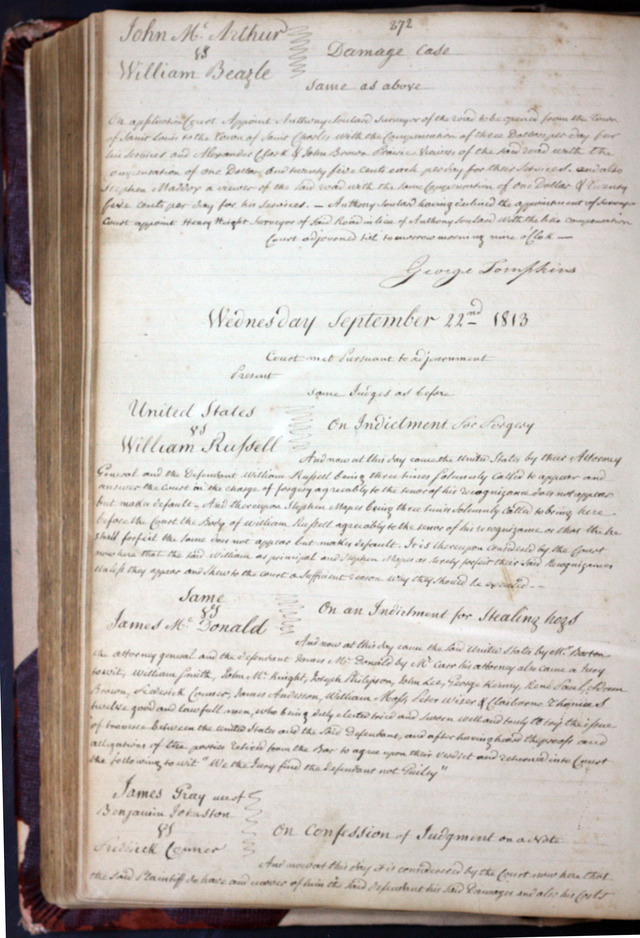 372
John Mc Arthur
vs
William Beazle
Damage Case
same as above
On application Court Appoint Anthony Soulard Surveyor of the road to be opened from the Town
of Saint Louis to the Town of Saint Charles with the Compensation of three Dollars per day for
his services and Alexander Clark & John Brown Prairie Viewers of the said road with the
Compensation of one Dollar and twenty five cents each per day for their Services. and also
Stephen Maddox a viewer of the said road with the same Compensation of one Dollar & twenty
five cents per day for his services. — Anthony Soulard having declined the appointment of Surveyor
Court appoint Henry Weight Surveyor of said Road in lieu of Anthony Soulard with the like compensation
Court adjourned till tomorrow morning nine oClok —
George Tompkins
Wednesday September 22nd 1813
Court met Pursuant to adjournment
Present
same Judges as before
United States
vs
William Russell
On Indictment for Forgery
And now at this day came the United States by their Attorney
General and the Defendant William Russell being three times Solemnly Called to appear and
answer the Court in the charge of forgery agreeably to the tenor of his recognizance does not appear
but makes default, And thereupon Stephen Mapes being three times Solemnly Called to bring here
before the Court the Body of William Russell agreeably to the tenor of his recognizance or that he
shall forfeit the same does not appear but makes default. It is thereupon considered by the Court
now here that the said William as principal and Stephen Mapes as surety forfeit their said Recognizances
unless they appear and shew to the court a Sufficient reason why they should be excused --
Same
vs
James Mc Donald
On an Indictment for Stealing hogs
And now at this day came the said United States by Mr Barton
the attorney general and the defendant James Mc Donald by Mr Carr his attorney also came a Jury
to wit, William Smith, John McKnight, Joseph Philipson, John Lee, George Kerny, René Paul,
Brown, Frederick Conner, James Anderson, William Moss, Peter Wizer & Claiborne Thomas
twelve good and lawfull men, who being duly elected tried and sworn well and truly to try the issue
of traverse between the United States and the said Defendant, and after having heard the proofs and
allegations of the parties retired from the Bar to agree upon their verdict and returned into Court
the following to wit "We the Jury find the defendant not Guilty"
James Gray use of
Benjamin Johnston
vs
Fredrick Conner
On Confession of Judgment on a Note
And now at this day it is considered by the Court now here that
the said Plaintiff do have and recover of him the said defendant his said Damages and also his Costs